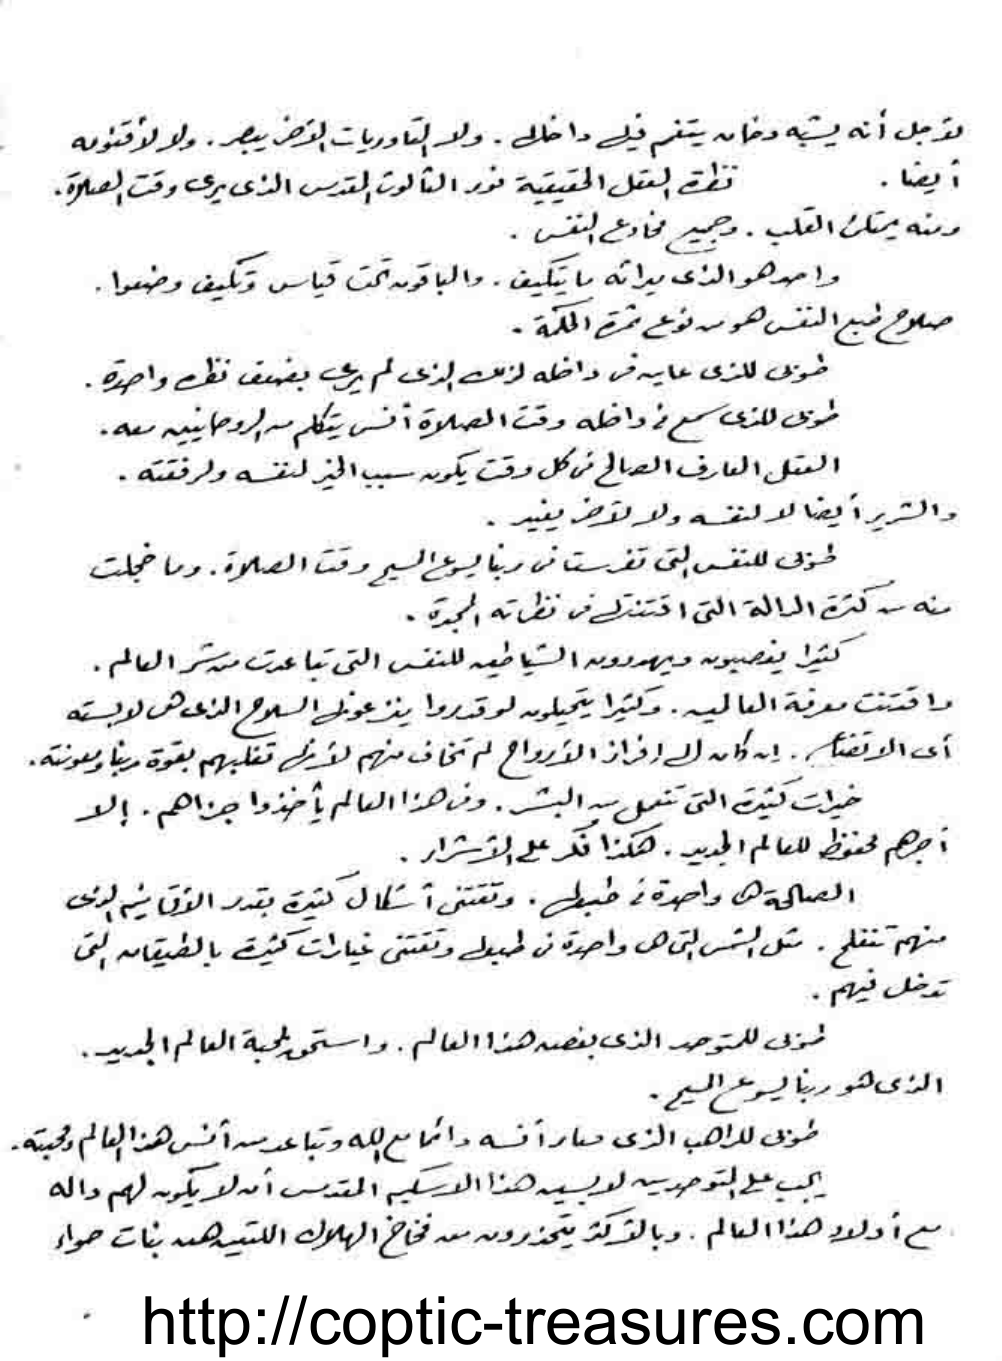 لأجل أنه يشبه دخان يتقم فيك داخلك . ولا التاوريات الأخر يبصر . ولا لأقنومه
أيضا . نظرة العقل الحقيقية نور الثالوث المقدس الذى يرى وقت الصلاة .
ومنه يمتلئ القلب . وجميع مخادع النفس .
واحد هو الذى ميراثه ما يتكيف . والباقون تحت قياس وتكيف وضعوا .
صلاح طبع النفس هو من نوع ثمرة الحكمة .
طوبى للذى عاين فى داخله لذلك الذى لم يرى بضعف نظره واحدة .
طوبى للذى سمع فى داخله وقت الصلاة أنس يتكلم من الروحانيين معه .
العقل العارف الصالح فى كل وقت يكون سبب الخير لنفسه ولرفقته .
والشرير أيضا لا لنفسه ولا لآخر يفيد .
طوبى للنفس التى تفرست فى ربنا يسوع المسيح وقت الصلاة . وما خجلت
منه من كثرة الدالة التى اقتنتها فى نظراته الممجدة .
كثيرا يغصبون ويهددون الشياطين للنفس التى تباعدت من شر العالم .
واقتنت معرفة العالمين . وكثيرا يتحيلون لو قدروا ينزعونك السلاح الذى هى لابسته
أى الاتضاع . إن كان لك إفراز الأرواح لم تخاف منهم لأنك تغلبهم بقوة ربنا ومعونته .
خيرات كثيرة التى تنعمل من البشر . وفى هذا العالم يأخذوا جزاهم . إلا
أجرهم محفوظ للعالم الجديد . هكذا فكر على الأشرار .
الصالحة هى واحدة فى طبعها . وتقتنى أشكال كثيرة بقدر الأقانيم الذى
منهم تنفلح . مثل الشمس التى هى واحدة فى طبعها وتقتنى غيارات كثيرة بالطيقان التى
تدخل فيهم .
طوبى للمتوحد الذى بغض هذا العالم . واستحق لمحبة العالم الجديد .
الذى هو ربنا يسوع المسيح .
طوبى للراهب الذى صار أنسه دائما مع الله وتباعد من أنس هذا العالم ومحبته .
يجب على المتوحدين لابسين هذا الاسكيم المقدس أن لا يكون لهم داله
مع أولاد هذا العالم . وبالأكثر يتحذرون من فخاخ الهلاك اللتين هن بنات حواء
http://coptic-treasures.com